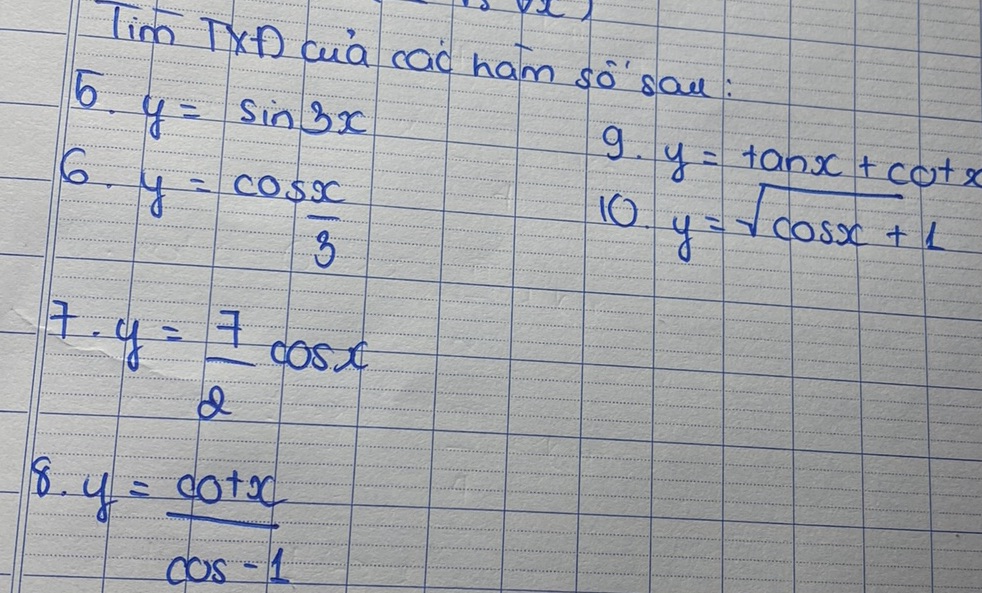 Tìm TXĐ của các hàm số sau:
5. y = sin3x
6. y = cos x/3
7. y = 7/2 cosx
8. y = cotx / cos - 1
9. y = tanx + cotx
10. y = √cosx + 1